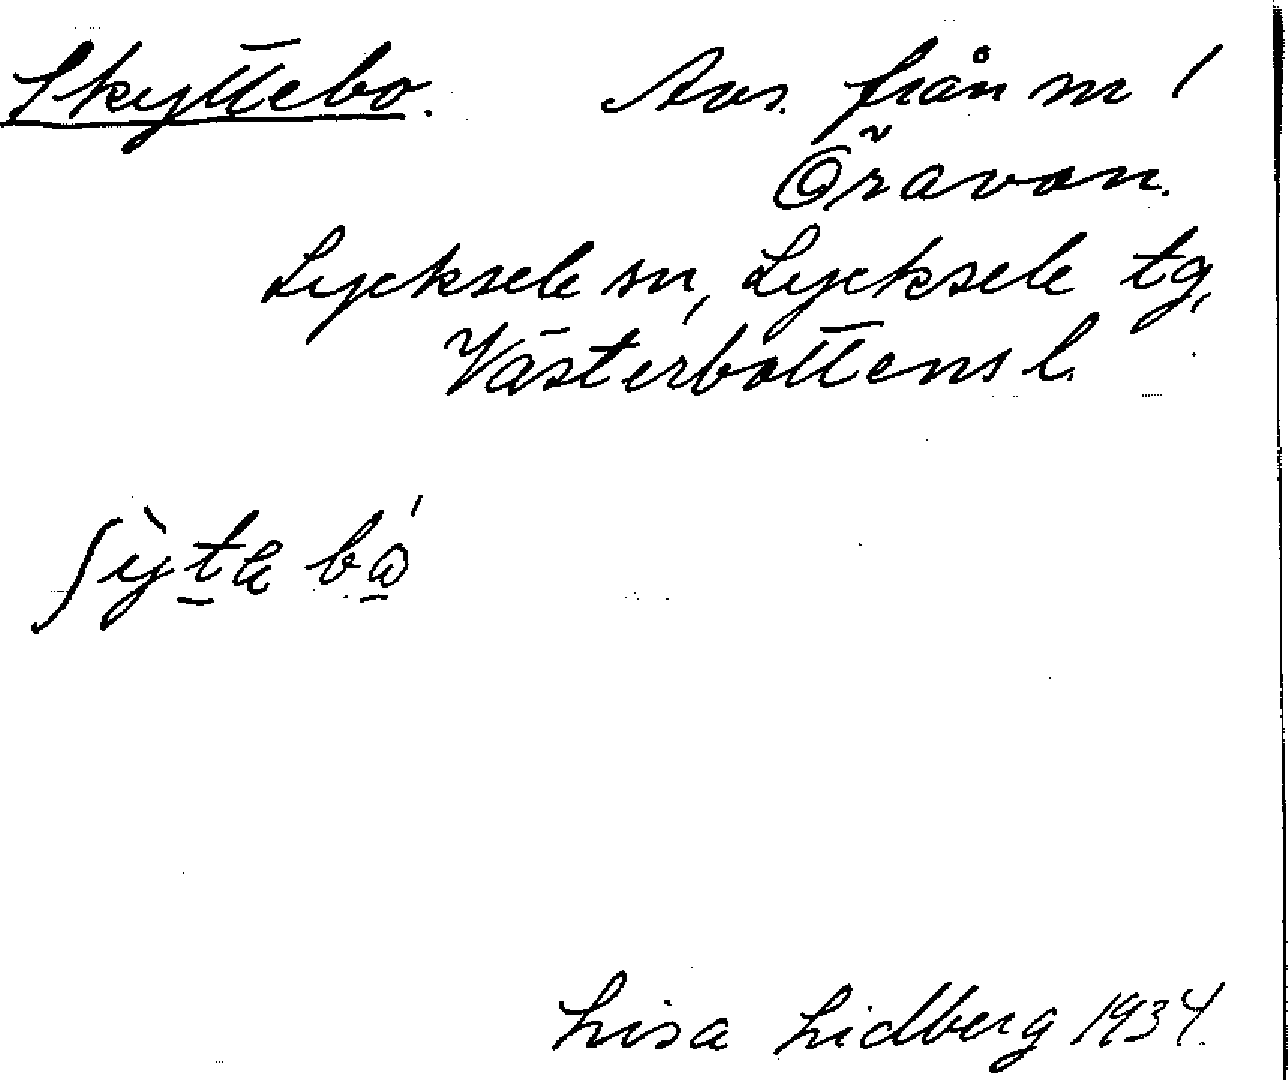 Skyttebo. Avs. från nr 1
Öravan.
Lycksele sn, Lycksele tg,
Västerbottens l.
ʃỳt̠e bǻ̠
Lisa Lidberg 1934.